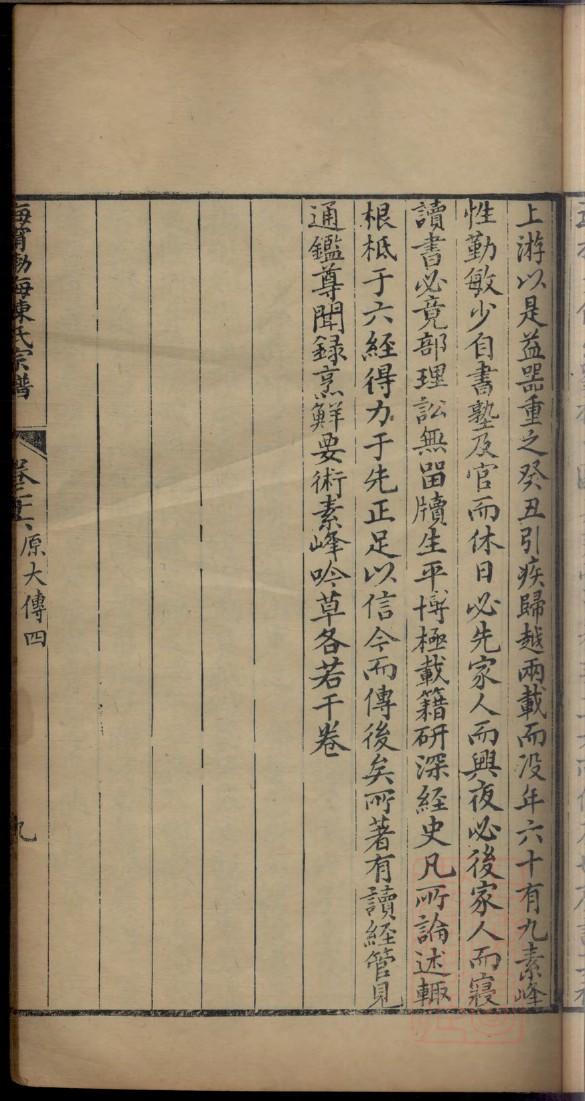 上游以是益器重之癸丑引疾歸越兩載而沒年六十有九素峰
性勤敏少自書塾及官而休日必先家人而興夜必後家人而寢
讀書必竟部理訟無畱牘生平博極載籍研深經史凡所論述輒
根柢于六經得力于先正足以信今而傳後矣所著有讀經管見
通鑑尊聞錄烹鮮要術素峰吟草各若干卷
海甯渤海陳氏宗譜
原大傳四
九